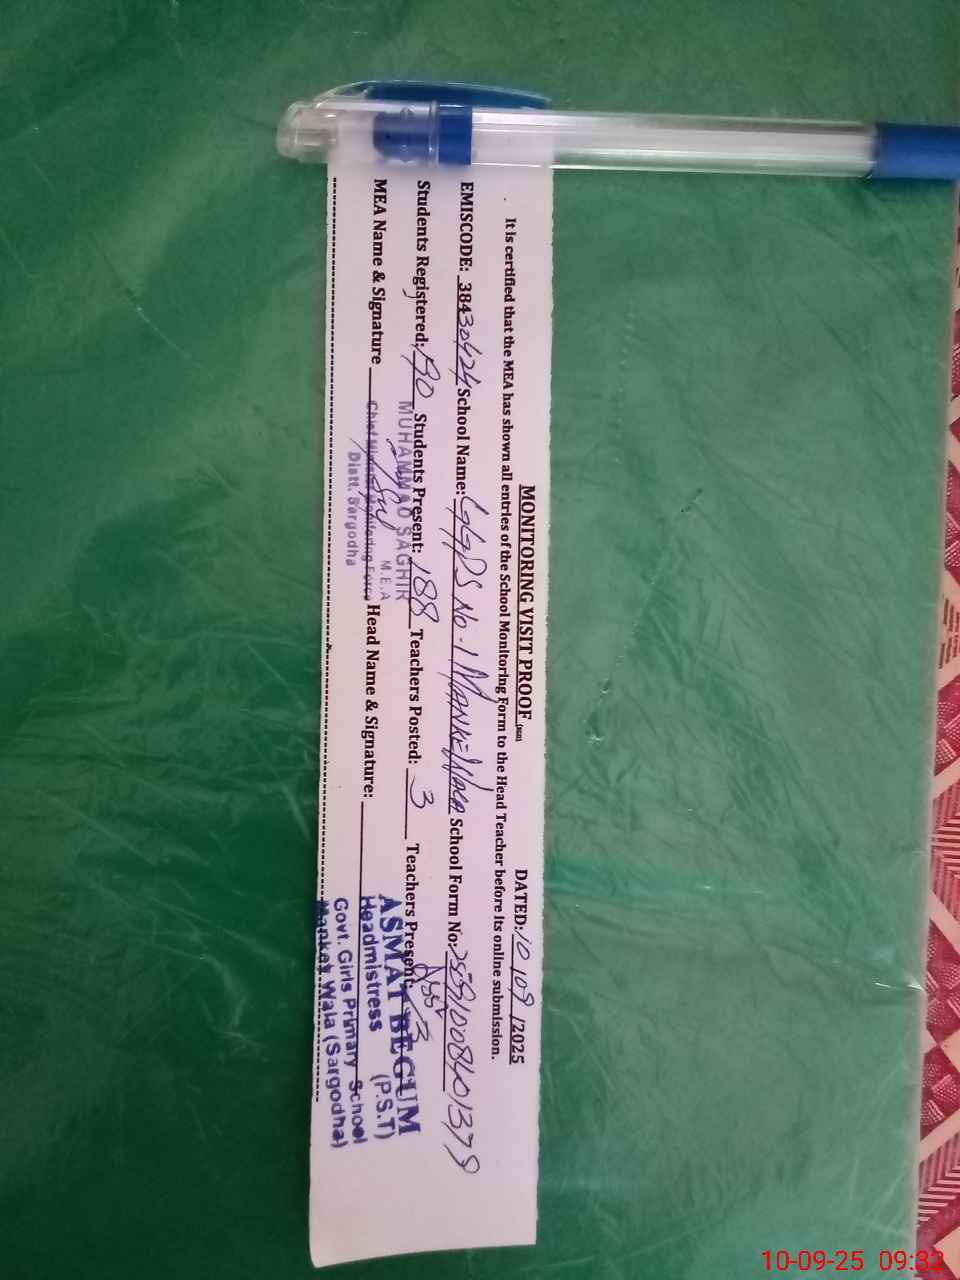 MONITORING VISIT PROOF DATED: 10/09/2025
It is certified that the MEA has shown all entries of the School Monitoring Form to the Head Teacher before its online submission.
EMISCODE: 38430424 School Name: GGPS No.1 MANKE Wala School Form No:
Students Registered: 190 Students Present: 188 Teachers Posted: 3 Teachers Present: 3
MEA Name & Signature Head Name & Signature:
MUHAMMAD SAGHIR
M.E.A
Monitoring Force
Distt. Sargodha
ASMAT BEGUM
Headmistress (P.S.T)
Govt. Girls Primary School
Mankey Wala (Sargodha)
10-09-25 09:32